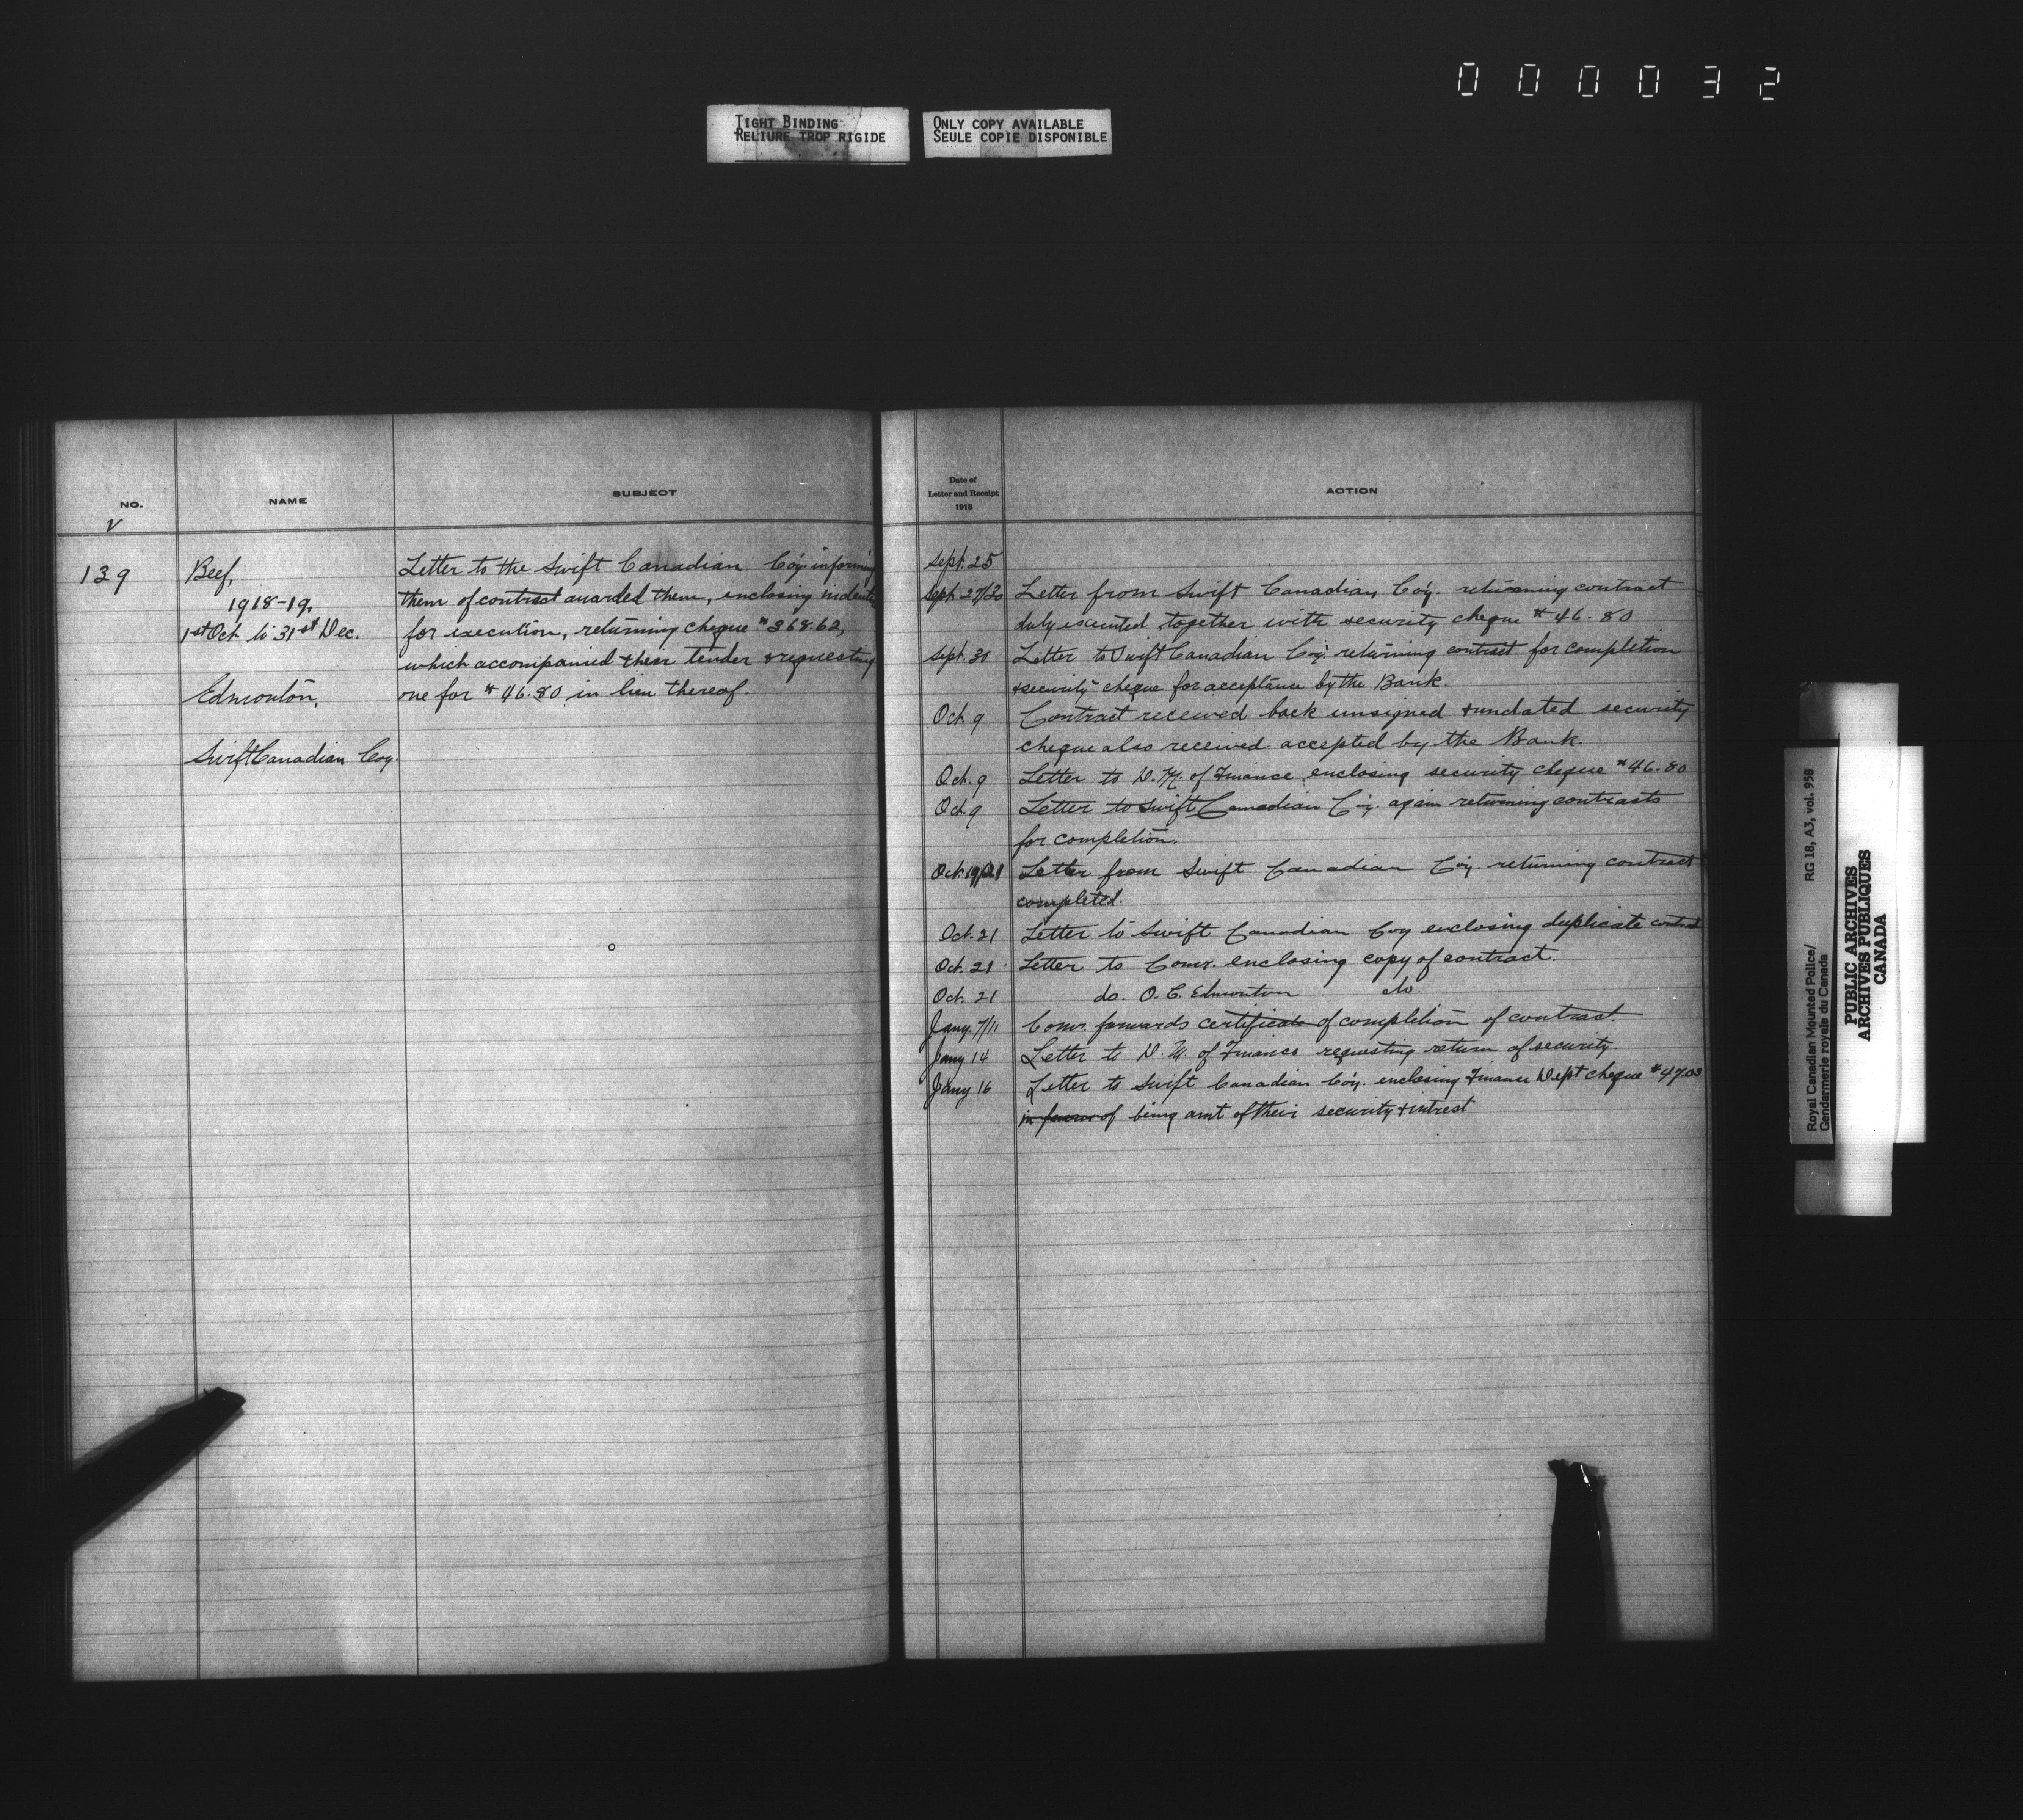 000032
TIGHT BINDING
RELIURE TROP RIGIDE
ONLY COPY AVAILABLE
SEULE COPIE DISPONIBLE
NO.
NAME
SUBJECT
139
Beef,
1918-19,
1st Oct. to 31st Dec.
Edmonton,
Swift Canadian Coy.
Letter to the Swift Canadian Coy. informing
them of contract awarded them, enclosing indents
for execution, returning cheque $368.62,
which accompanied their tender & requesting
one for $46.80 in lieu thereof.
Date of
Letter and Receipt
1918
ACTION
Sept. 25
Sept. 27/30 Letter from Swift Canadian Coy. returning contract
duly executed together with security cheque $46.80
Sept. 30 Letter to Swift Canadian Coy. returning contract for completion
& security cheque for acceptance by the Bank.
Oct. 9 Contract received back unsigned & undated security
cheque also received accepted by the Bank.
Oct. 9 Letter to D.M. of Finance enclosing security cheque $46.80
Oct. 9 Letter to Swift Canadian Coy. again returning contracts
for completion.
Oct. 19/21 Letter from Swift Canadian Coy. returning contract
completed.
Oct. 21 Letter to Swift Canadian Coy enclosing duplicate contract
Oct. 21 Letter to Comr. enclosing copy of contract.
Oct. 21 do. O.C. Edmonton do
Jany. 7/11 Comr. forwards certificate of completion of contract.
Jany 14 Letter to D.M. of Finance requesting return of security.
Jany 16 Letter to Swift Canadian Coy. enclosing Finance Dept cheque $47.03
in favour of being amt of their security & intrest
Royal Canadian Mounted Police/ RG 18, A3, vol. 958
Gendarmerie royale du Canada
PUBLIC ARCHIVES
ARCHIVES PUBLIQUES
CANADA